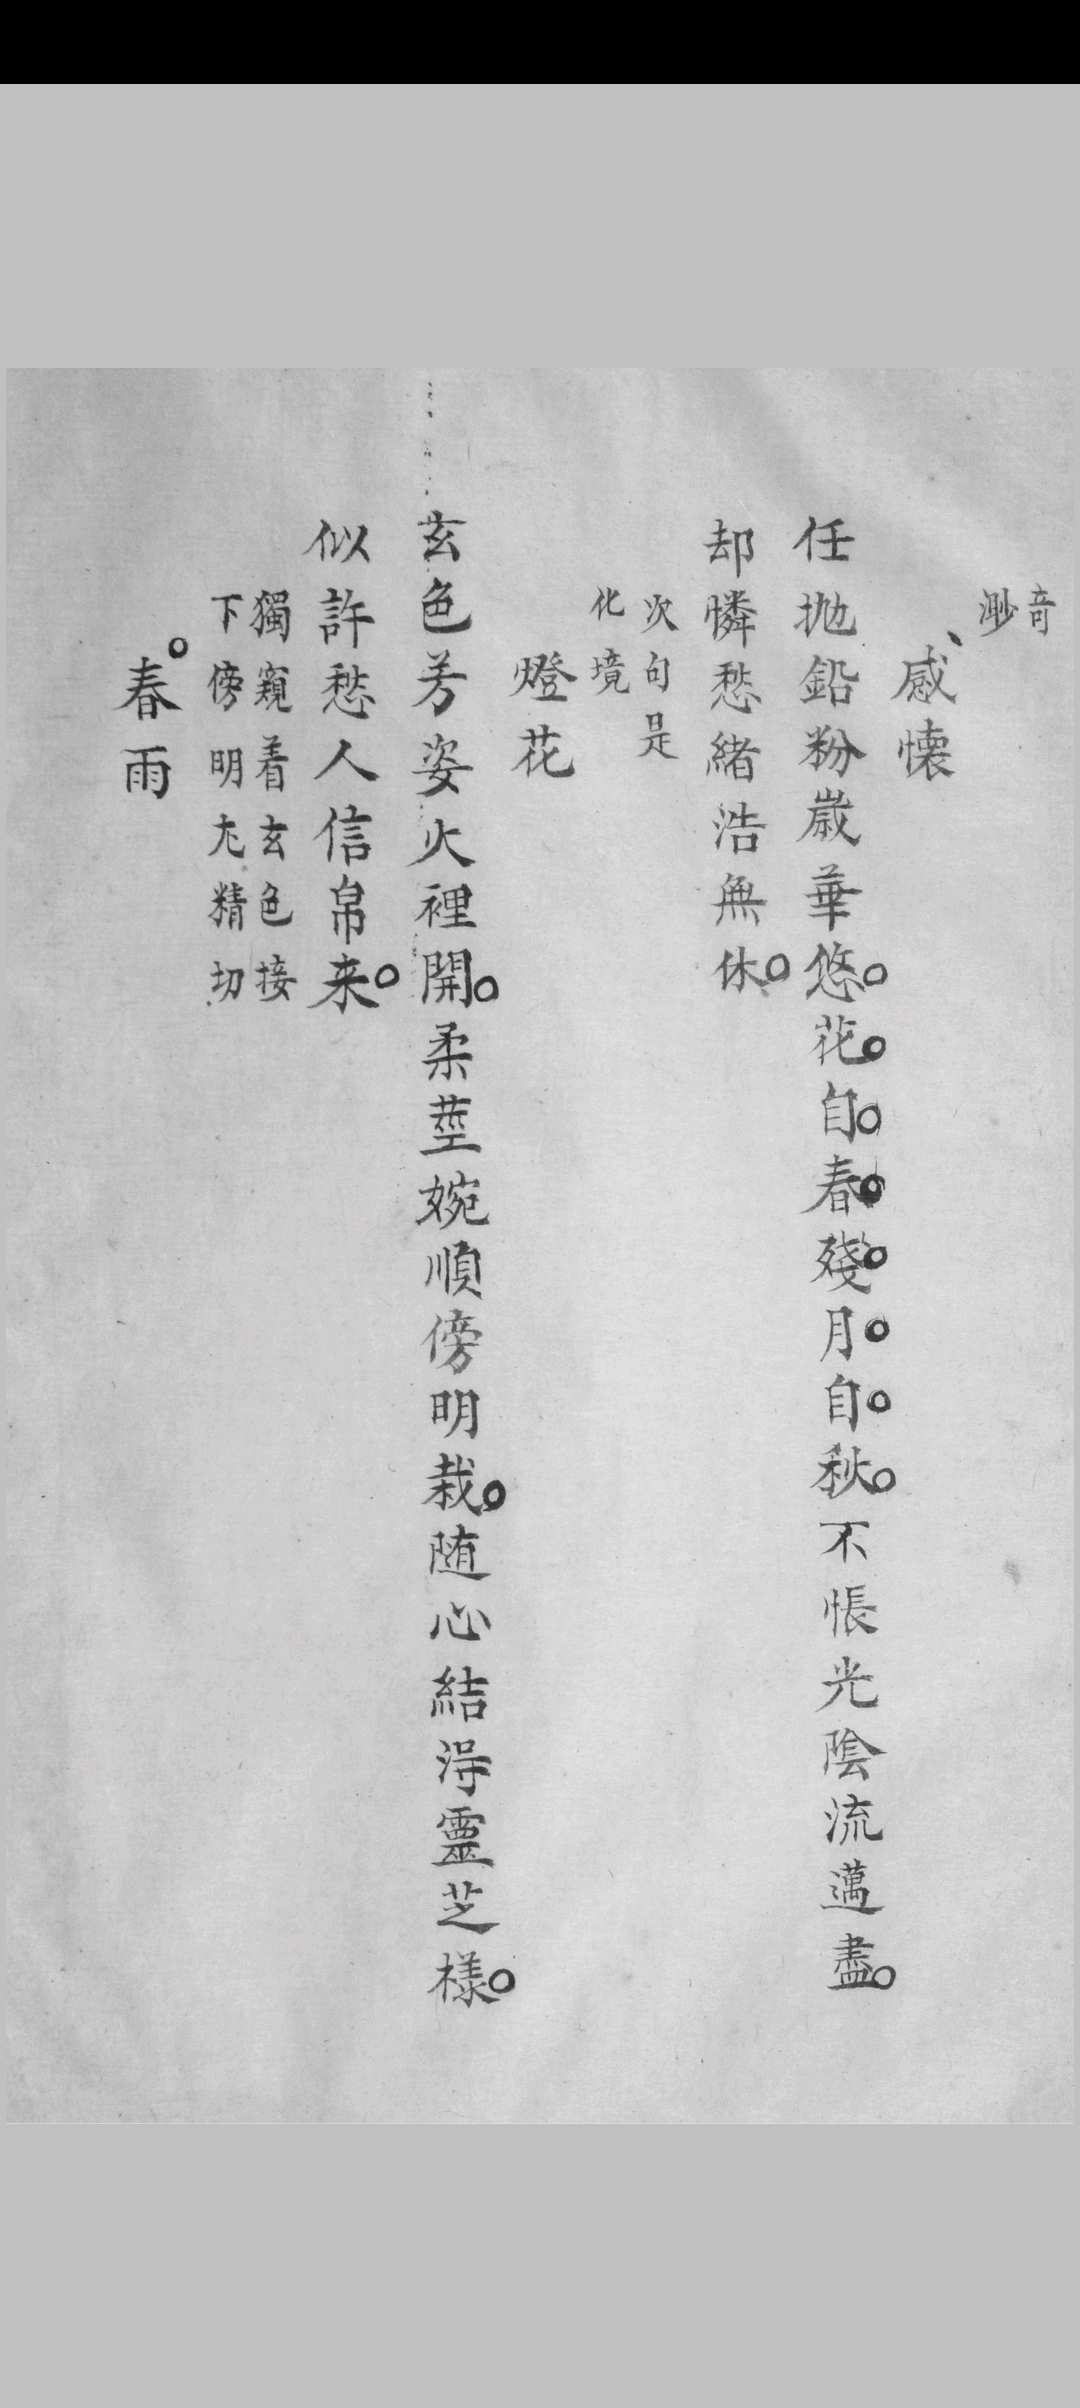 奇
渺
感懐
任抛鉛粉嵗華悠花自春殘月自秋不悵光陰流邁盡
却憐愁緒浩無休
次句是
化境
燈花
玄色芳姿火裡開柔莖婉順傍明栽随心結淂靈芝様
似許愁人信帛来
獨窺着玄色接
下傍明尢精切
春雨